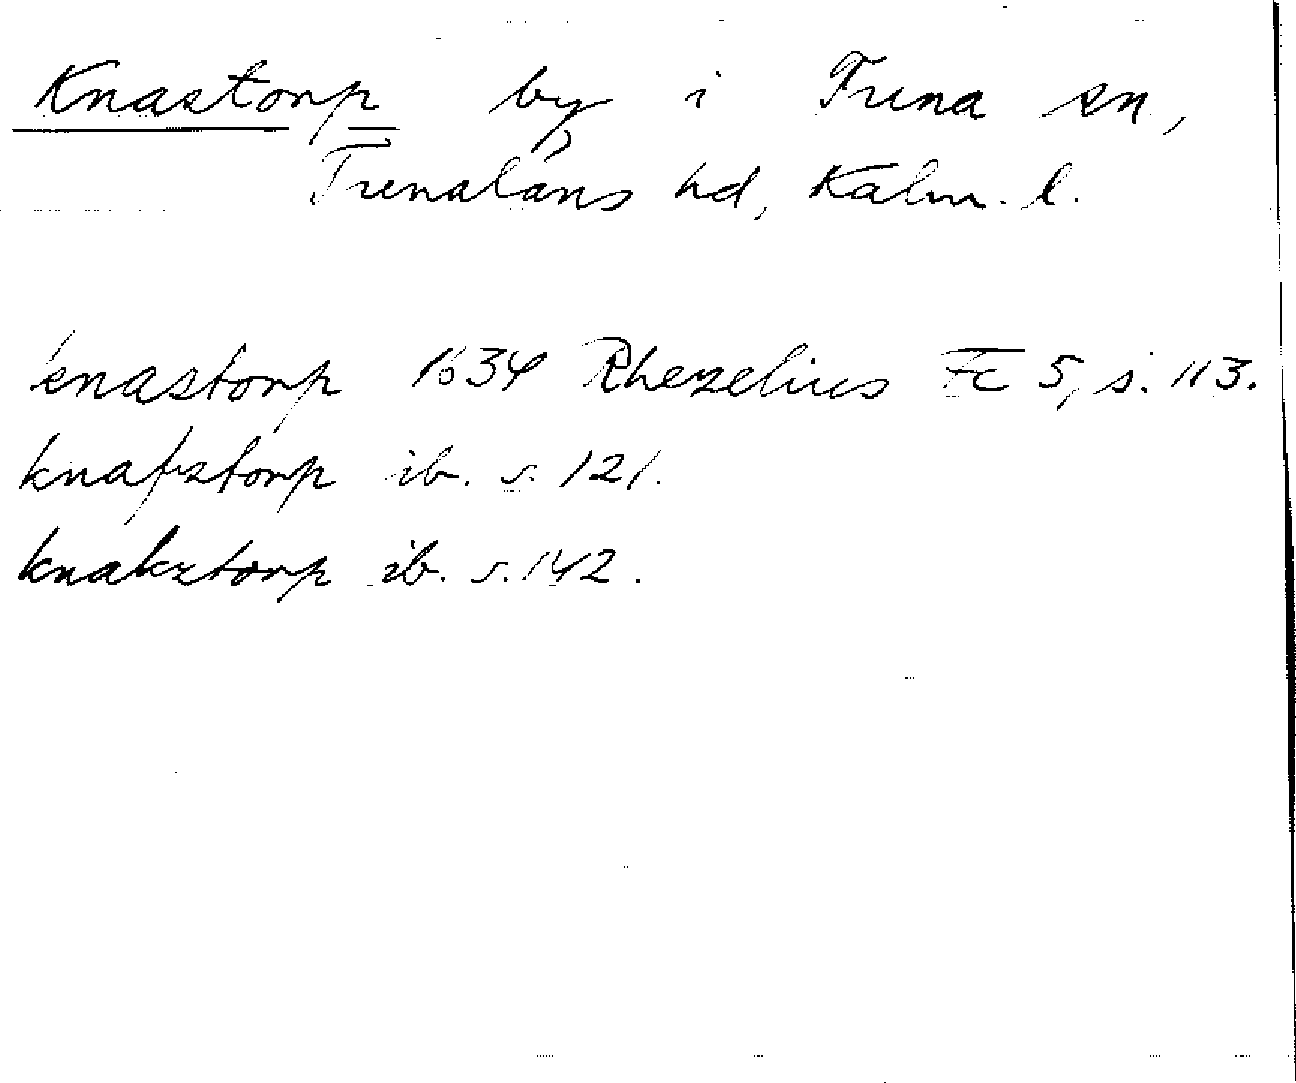 Knastorp by i Tuna sn,
Tunaläns hd, Kalm. l.
knastorp 1634 Rhezelius Fc 5, s. 113.
knafstorp ib. s. 121.
knakstorp ib. s. 142.